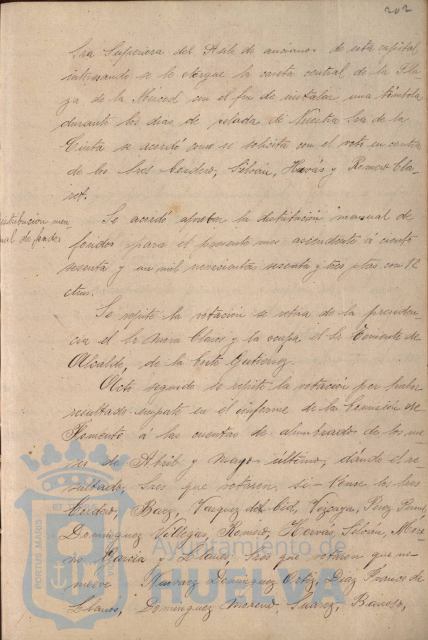 202
Sra Superiora del Asilo de ancianos de esta capital,
interesando se le otorgue la caseta central de la Pla-
za de la Merced con el fin de instalar una tómbola
durante los días de velada de Nuestra Sra de la
Cinta se acordó como se solicita con el voto en contra
de los Sres Cordero, Silván, Hervás y Romero Cla-
ret.
distribución men-
sual de fondos
Se acordó aprobar la distribución mensual de
fondos para el presente mes ascendente á ciento
sesenta y un mil novecientas sesenta y tres ptas con 12
ctms.
Se repite la votación se retira de la presiden-
cia el Sr Mora Claros y la ocupa el Sr Teniente de
Alcalde, de la Corte Gutierrez
Acto seguido se repite la votación por haber
resultado empate en el informe de la Comisión de
Fomento á las cuentas de alumbrado de los me-
ses de Abril y Mayo último, dando el re-
sultado, Sres que votaron, si = Once los Sres
Cordero, Baez, Vazquez del Cid, Vizcaya, Perez
Dominguez Villegas, Romero, Hervás, Silván, More-
no García y Llanes, Sres que votaron que no=
nueve Narvaez Dominguez Ortiz, Diaz Franco de
Llanos, Dominguez Moreno, Suarez,
PORTUS MARIS
Ayuntamiento de
HUELVA